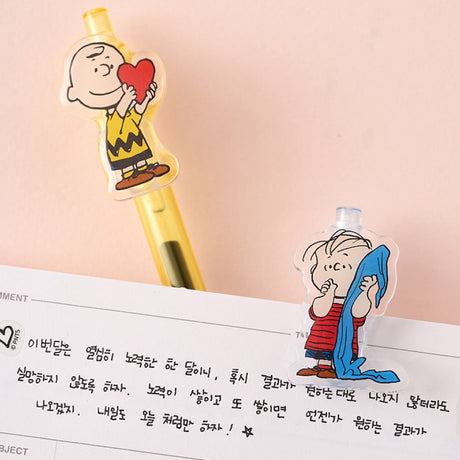 MMENT
23
© PNTS
이번달은 열심히 노력한 한 달이니, 혹시 결과가 원하는 대로 나오지 않더라도
실망하지 않도록 하자. 노력이 쌓이고 또 쌓이면 언젠가 원하는 결과가
나오겠지. 내일도 오늘 처럼만 하자! ☆
BJECT